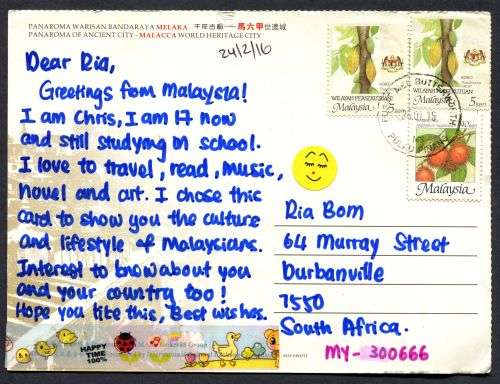 PANAROMA WARISAN BANDARAYA MELAKA 千年古都 — 馬六甲 世遺城
PANAROMA OF ANCIENT CITY - MALACCA WORLD HERITAGE CITY
24/2/16
Dear Ria,
Greetings from Malaysia!
I am Chris, I am 17 now
and still studying in school.
I love to travel, read, music,
novel and art. I chose this
card to show you the culture
and lifestyle of Malaysians.
Interest to know about you
and your country too!
Hope you like this, Best wishes.
HAPPY
TIME
100%
WILAYAH PERSEKUTUAN
Malaysia 5 sen
WILAYAH PERSEKUTUAN
Malaysia 5 sen
BUTTERWORTH
Malaysia
Ria Bom
64 Murray Street
Durbanville
7550
South Africa.
MY-300666